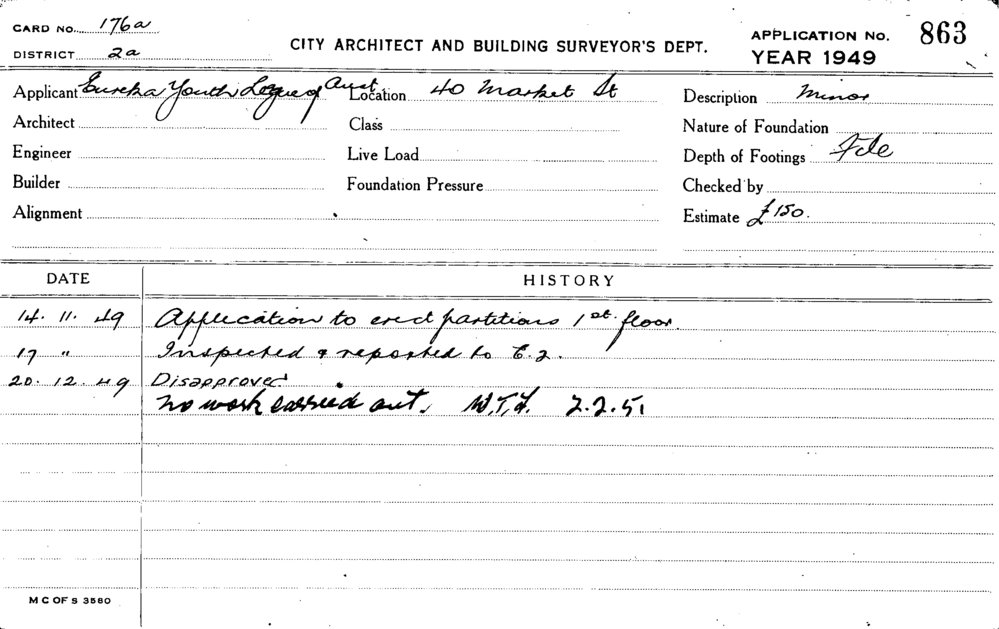 CARD NO. 176a
DISTRICT 2a
CITY ARCHITECT AND BUILDING SURVEYOR'S DEPT.
APPLICATION NO. 863
YEAR 1949
Applicant Eureka Youth League of Aust. Location 40 Market St Description Minor
Architect Class Nature of Foundation
Engineer Live Load Depth of Footings
Builder Foundation Pressure Checked by
Alignment Estimate £150.
DATE HISTORY
14. 11. 49 Application to erect partitions 1st. floor.
17 " Inspected & reported to
20. 12. 49 Disapproved
No work carried out. 2.2.51
M C OF S 3560